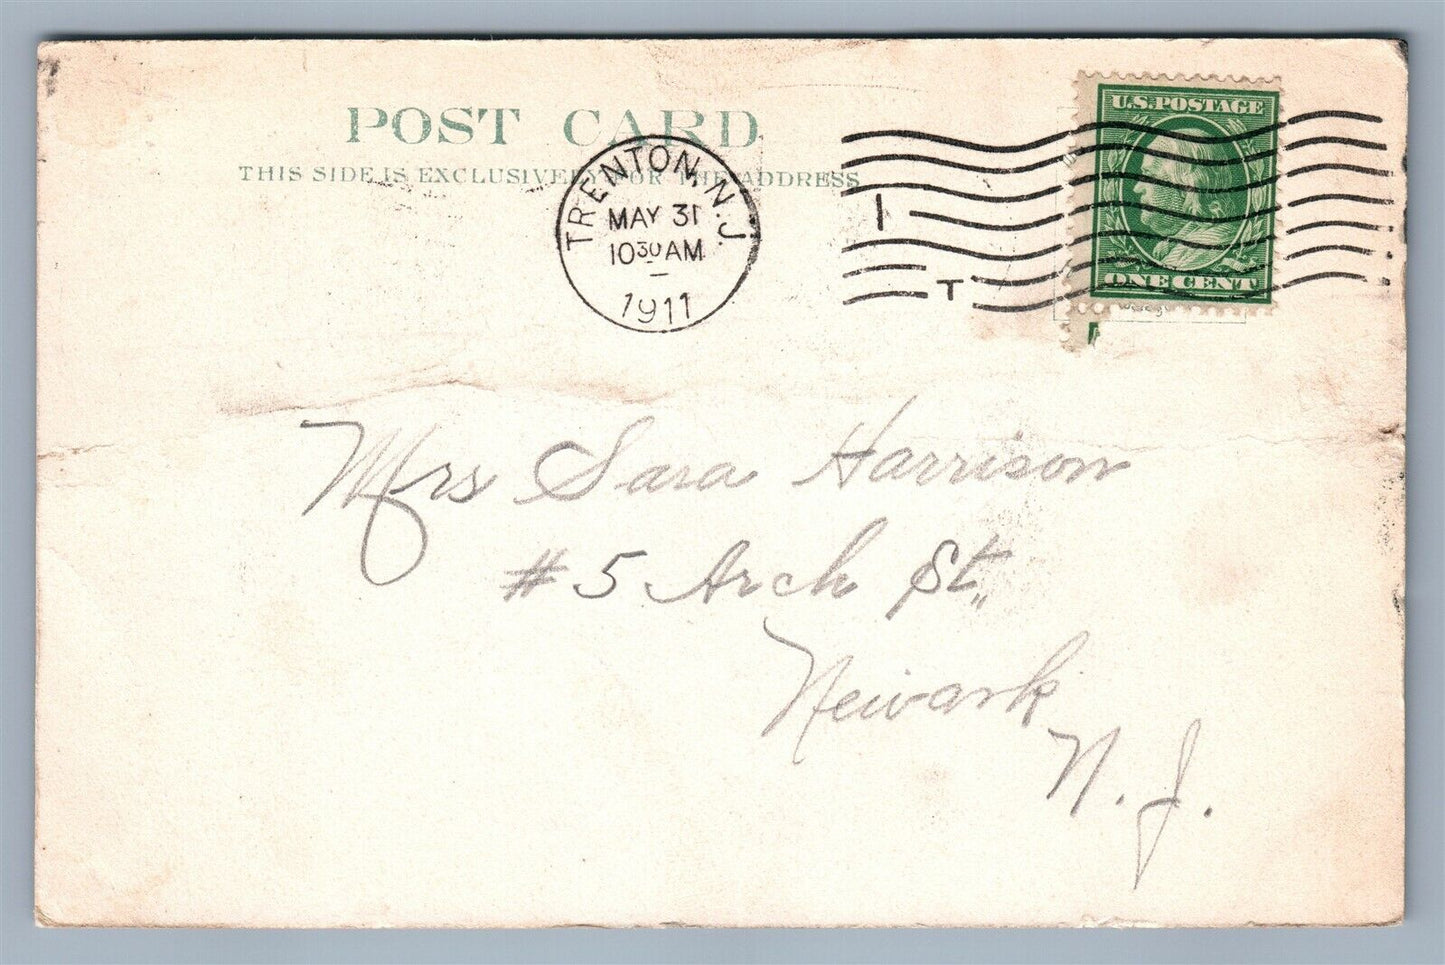 POST CARD
THIS SIDE IS EXCLUSIVELY FOR THE ADDRESS
TRENTON, N.J.
MAY 31
10 30 AM
1911
1
T
U.S. POSTAGE
ONE CENT
Mrs Sara Harrison
#5 Arch St.,
Newark
N. J.